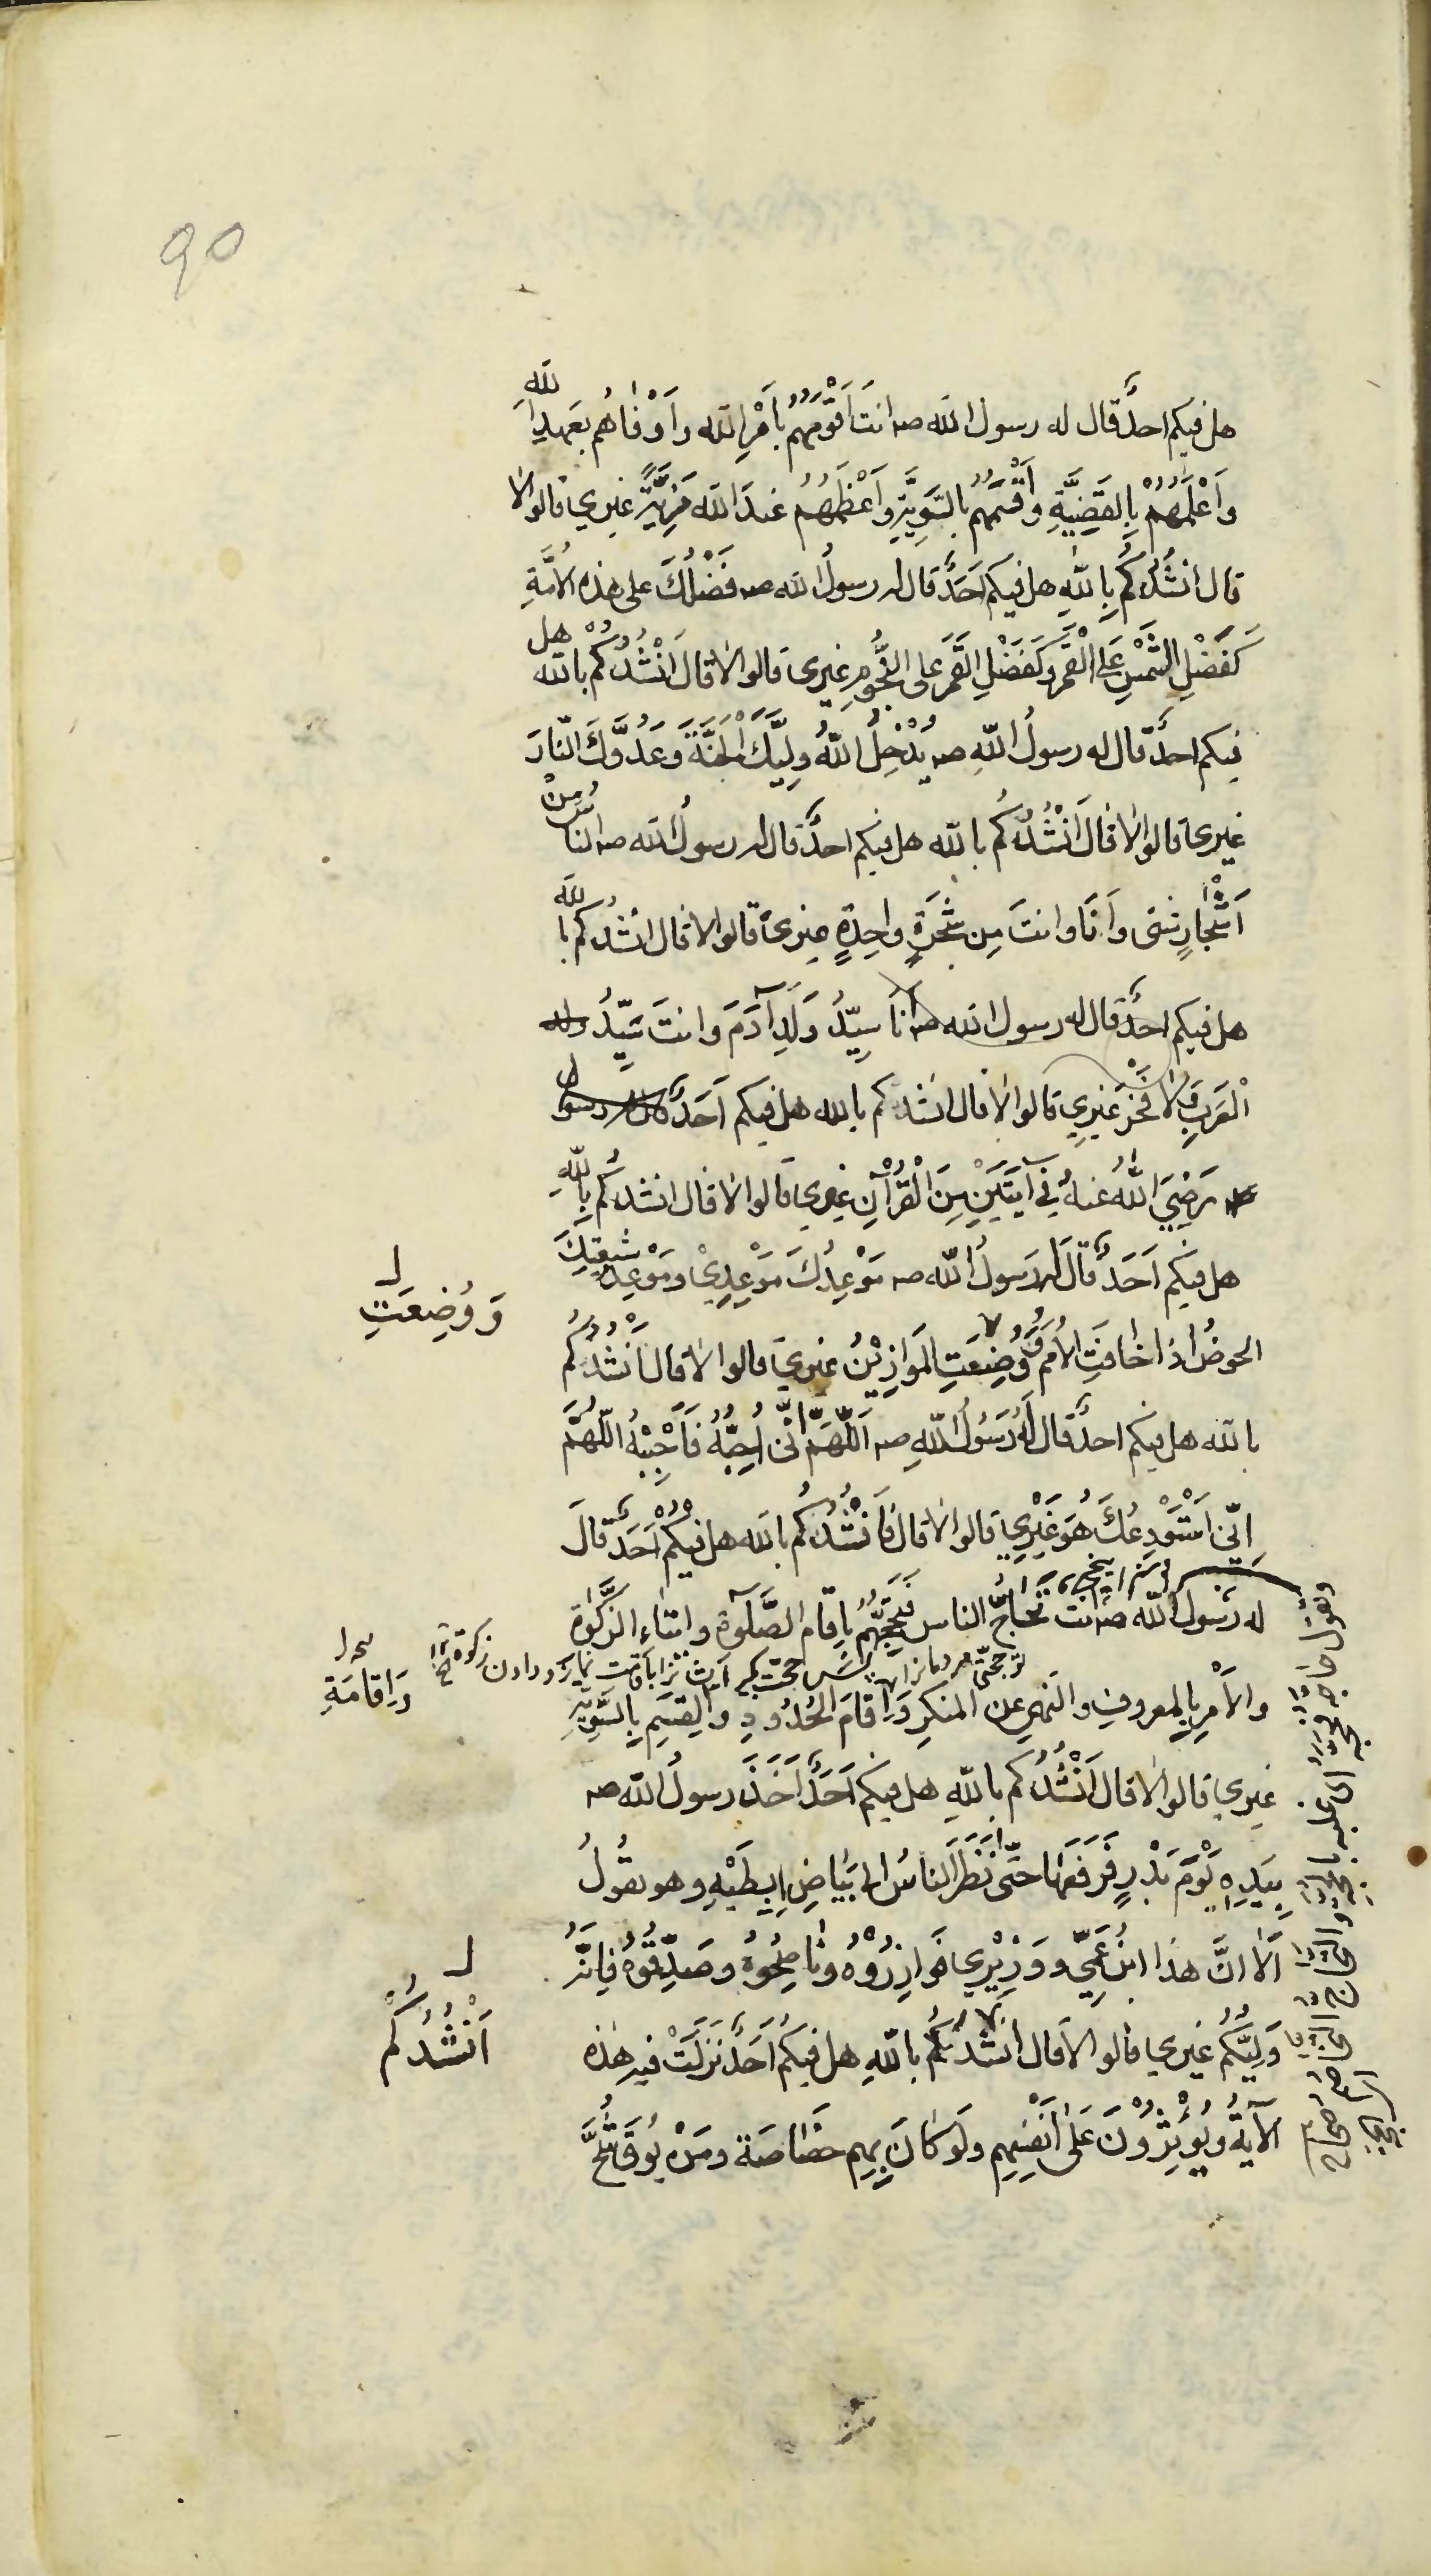 90
هل فيكم احدٌ قال له رسول الله صه انتَ اَقْوَمُهُم بِاَمْرِ الله واَوْفٰاهُم بعَهدِ اللهِ
وَاَعْلَمُهُمْ بِالقَضِيَّةِ وَاَقْسَمُهُم بالسَّوِيَّةِ وَاَعْظَمُهُمُ عندَ الله مَزِيَّةً غيري قالوا لا
قال انشُدُكُم بِاللهِ هل فيكم اَحَدٌ قال له رسولُ الله صه فَضْلُكَ على هذه الاُمَّةِ
كَفَضْلِ الشَّمْسِ عَلَى الْقَمَرِ وَكَفَضْلِ القَمَرِ على النُّجُومِ غيرى قالوا لا قال اَنْشُدُكُمْ بالله هل
فيكم احدٌ قال له رسولُ اللهِ صه يُدْخِلُ اللهُ وَلِيَّكَ الْجَنَّةَ وَعَدُوَّكَ النّارَ
غيرى قالوا لا قال اَنْشُدُكُم بالله هل فيكم احدٌ قال له رسولُ الله صه الناسُ مِنْ
اَشْجٰارٍ شتى وَاَنَا وانتَ مِن شَجَرَةٍ واحِدَةٍ غيرى قالوا لا قال انشُدُكم بالله
هل فيكم احدٌ قال له رسول الله صه اَنَا سيِّدُ وَلَدِ آدَمَ وانتَ سَيِّدُ
الْعَرَبِ وَلا فَخْرَ غَيْرِي قالوا لا قال انشدكم بالله هل فيكم اَحَدٌ
رَضِيَ اللهُ عنهُ في آيَتَيْنِ مِنَ الْقُرْآنِ غيري قالوا لا قال انشدكُم بِاللهِ
هل فيكم اَحَدٌ قالَ له رَسولُ الله صه مَوْعِدُكَ مَوْعِدِيْ ومَوْعِدُ شيعَتِكَ
الحوضُ اذا خافَتِ الاُمَمُ وَوُضِعَتِ المَوَازِيْنُ غيري قالوا لا قال اَنْشُدُكُم
وَوُضِعَتِ
بالله هل فيكم احدٌ قال لَهُ رَسُولُ اللهِ صه اَللّهُمَّ اِنّى اُحِبُّهُ فَاَحِبَّهُ اللّهُمَّ
اِنّي اَسْتَوْدِعُكَ هُوَ غَيْرِي قالوا لا قال فَاَنْشُدُكُم بالله هل فيكُمْ اَحَدٌ قالَ
له رسولُ الله صه انت تُحاجُّ الناس فَتَحُجُّهُم بِاِقامِ الصَّلٰوةِ وايتاءِ الزَّكٰوة
والاَمْرِ بِالمعروفِ والنهيِ عن المنكرِ وَاِقامَ الحُدُودِ والقِسَمِ بِالسَّوِيَّةِ
وَاِقامَةِ
غيري قالوا لا قال اَنْشُدُكم باللهِ هل فيكم اَحَدٌ اَخَذَ رسولُ الله صه
بِيَدِهِ يَوْمَ بَدْرٍ فَرَفَعَها حتّى نَظَرَ الناسُ الى بَيَاضِ اِبِطَيْهِ وهو يقُولُ
اَلاٰ اِنَّ هذا ابنُ عَمِّي وَوَزِيْرِي فَوَازِرُوْهُ وناصِحُوهُ وصَدِّقُوهُ فَاِنَّهُ
وَلِيُّكُم غيري قالوا لا قال انشُدُكُم باللهِ هل فيكُم اَحَدٌ نَزَلَتْ فيهِ هٰذه
اَنْشُدُكُم
الآيَةُ ويُؤْثِرُوْنَ عَلٰى اَنْفُسِهِم ولَو كانَ بِهِم خَصٰاصَة ومَنْ يُوقَ شُحَّ